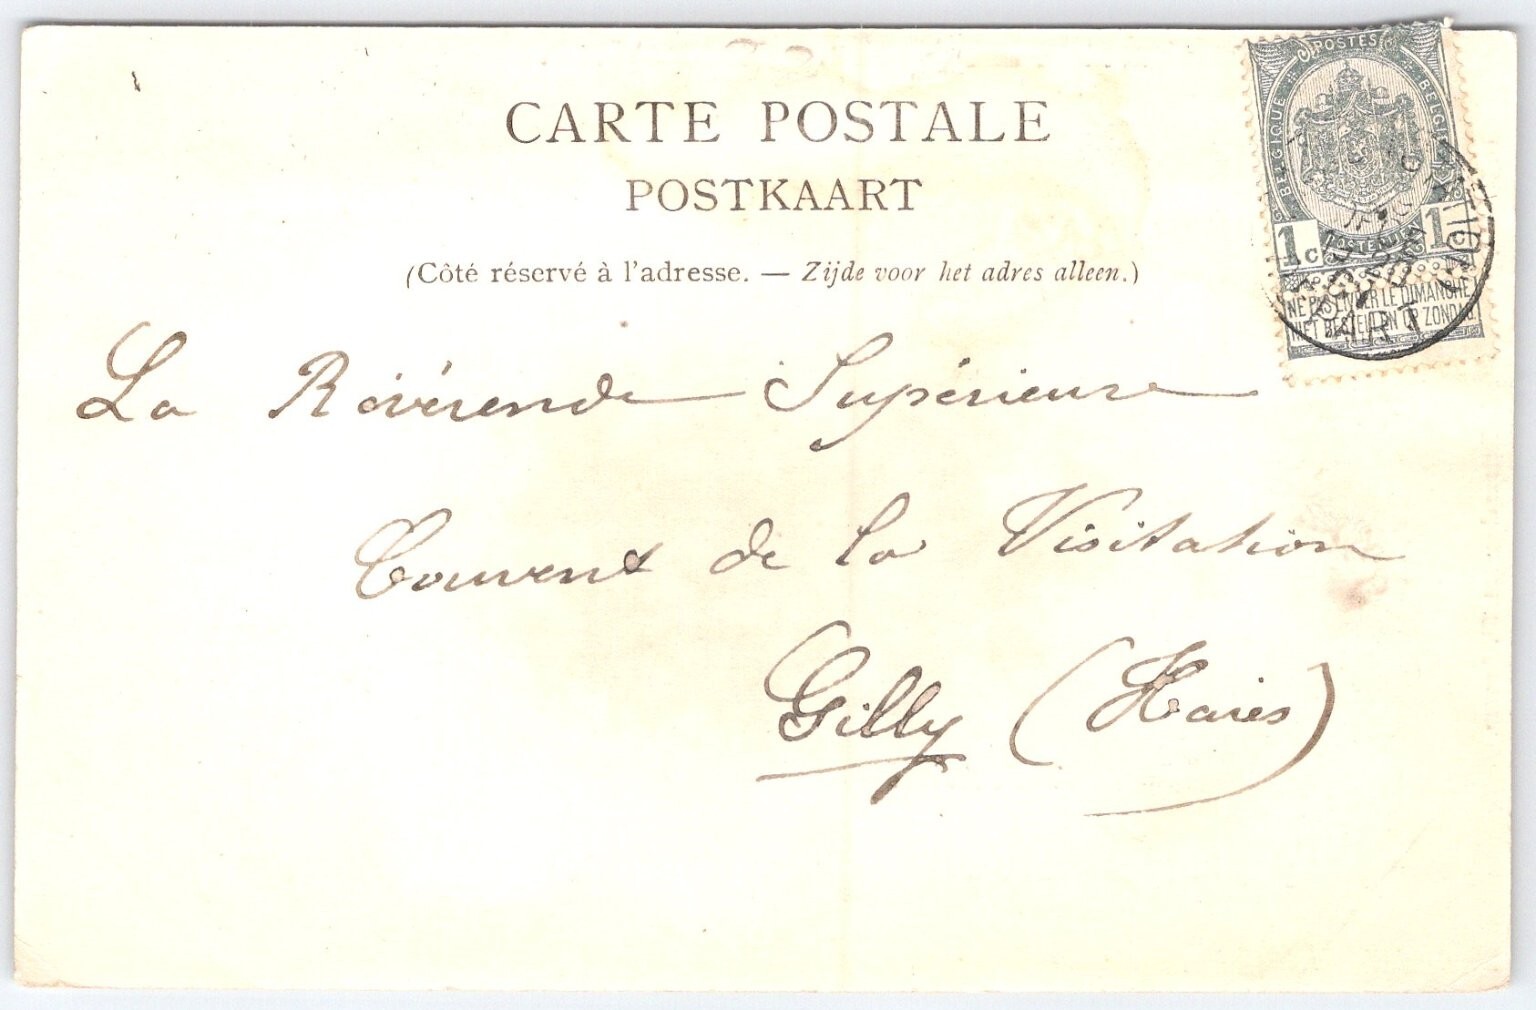 CARTE POSTALE
POSTKAART
(Côté réservé à l'adresse. — Zijde voor het adres alleen.)
POSTES
BELGIQUE
BELGIË
POSTERIJEN
1c 1c
NE PAS LIVRER LE DIMANCHE
NIET BESTELLEN OP ZONDAG
La Révérende Supérieure
Couvent de la Visitation
Gilly (Haies)